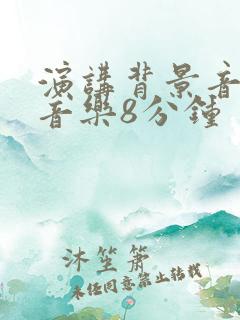 演講背景音
音樂8分鍾
沐笙簫
未经同意禁止转载